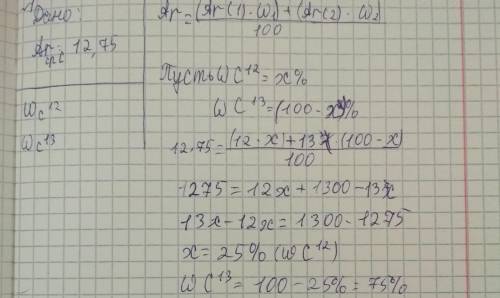 Дано:
Ar ср C = 12,75
W C¹²
W C¹³
Ar = (Ar(1)·W₁)+(Ar(2)·W₂)
100
Пусть W C¹² = x%
W C¹³ = (100-x)%
12,75 = (12·x)+13·(100-x)
100
1275 = 12x + 1300 - 13x
13x - 12x = 1300 - 1275
x = 25% (W C¹²)
W C¹³ = 100 - 25% = 75%